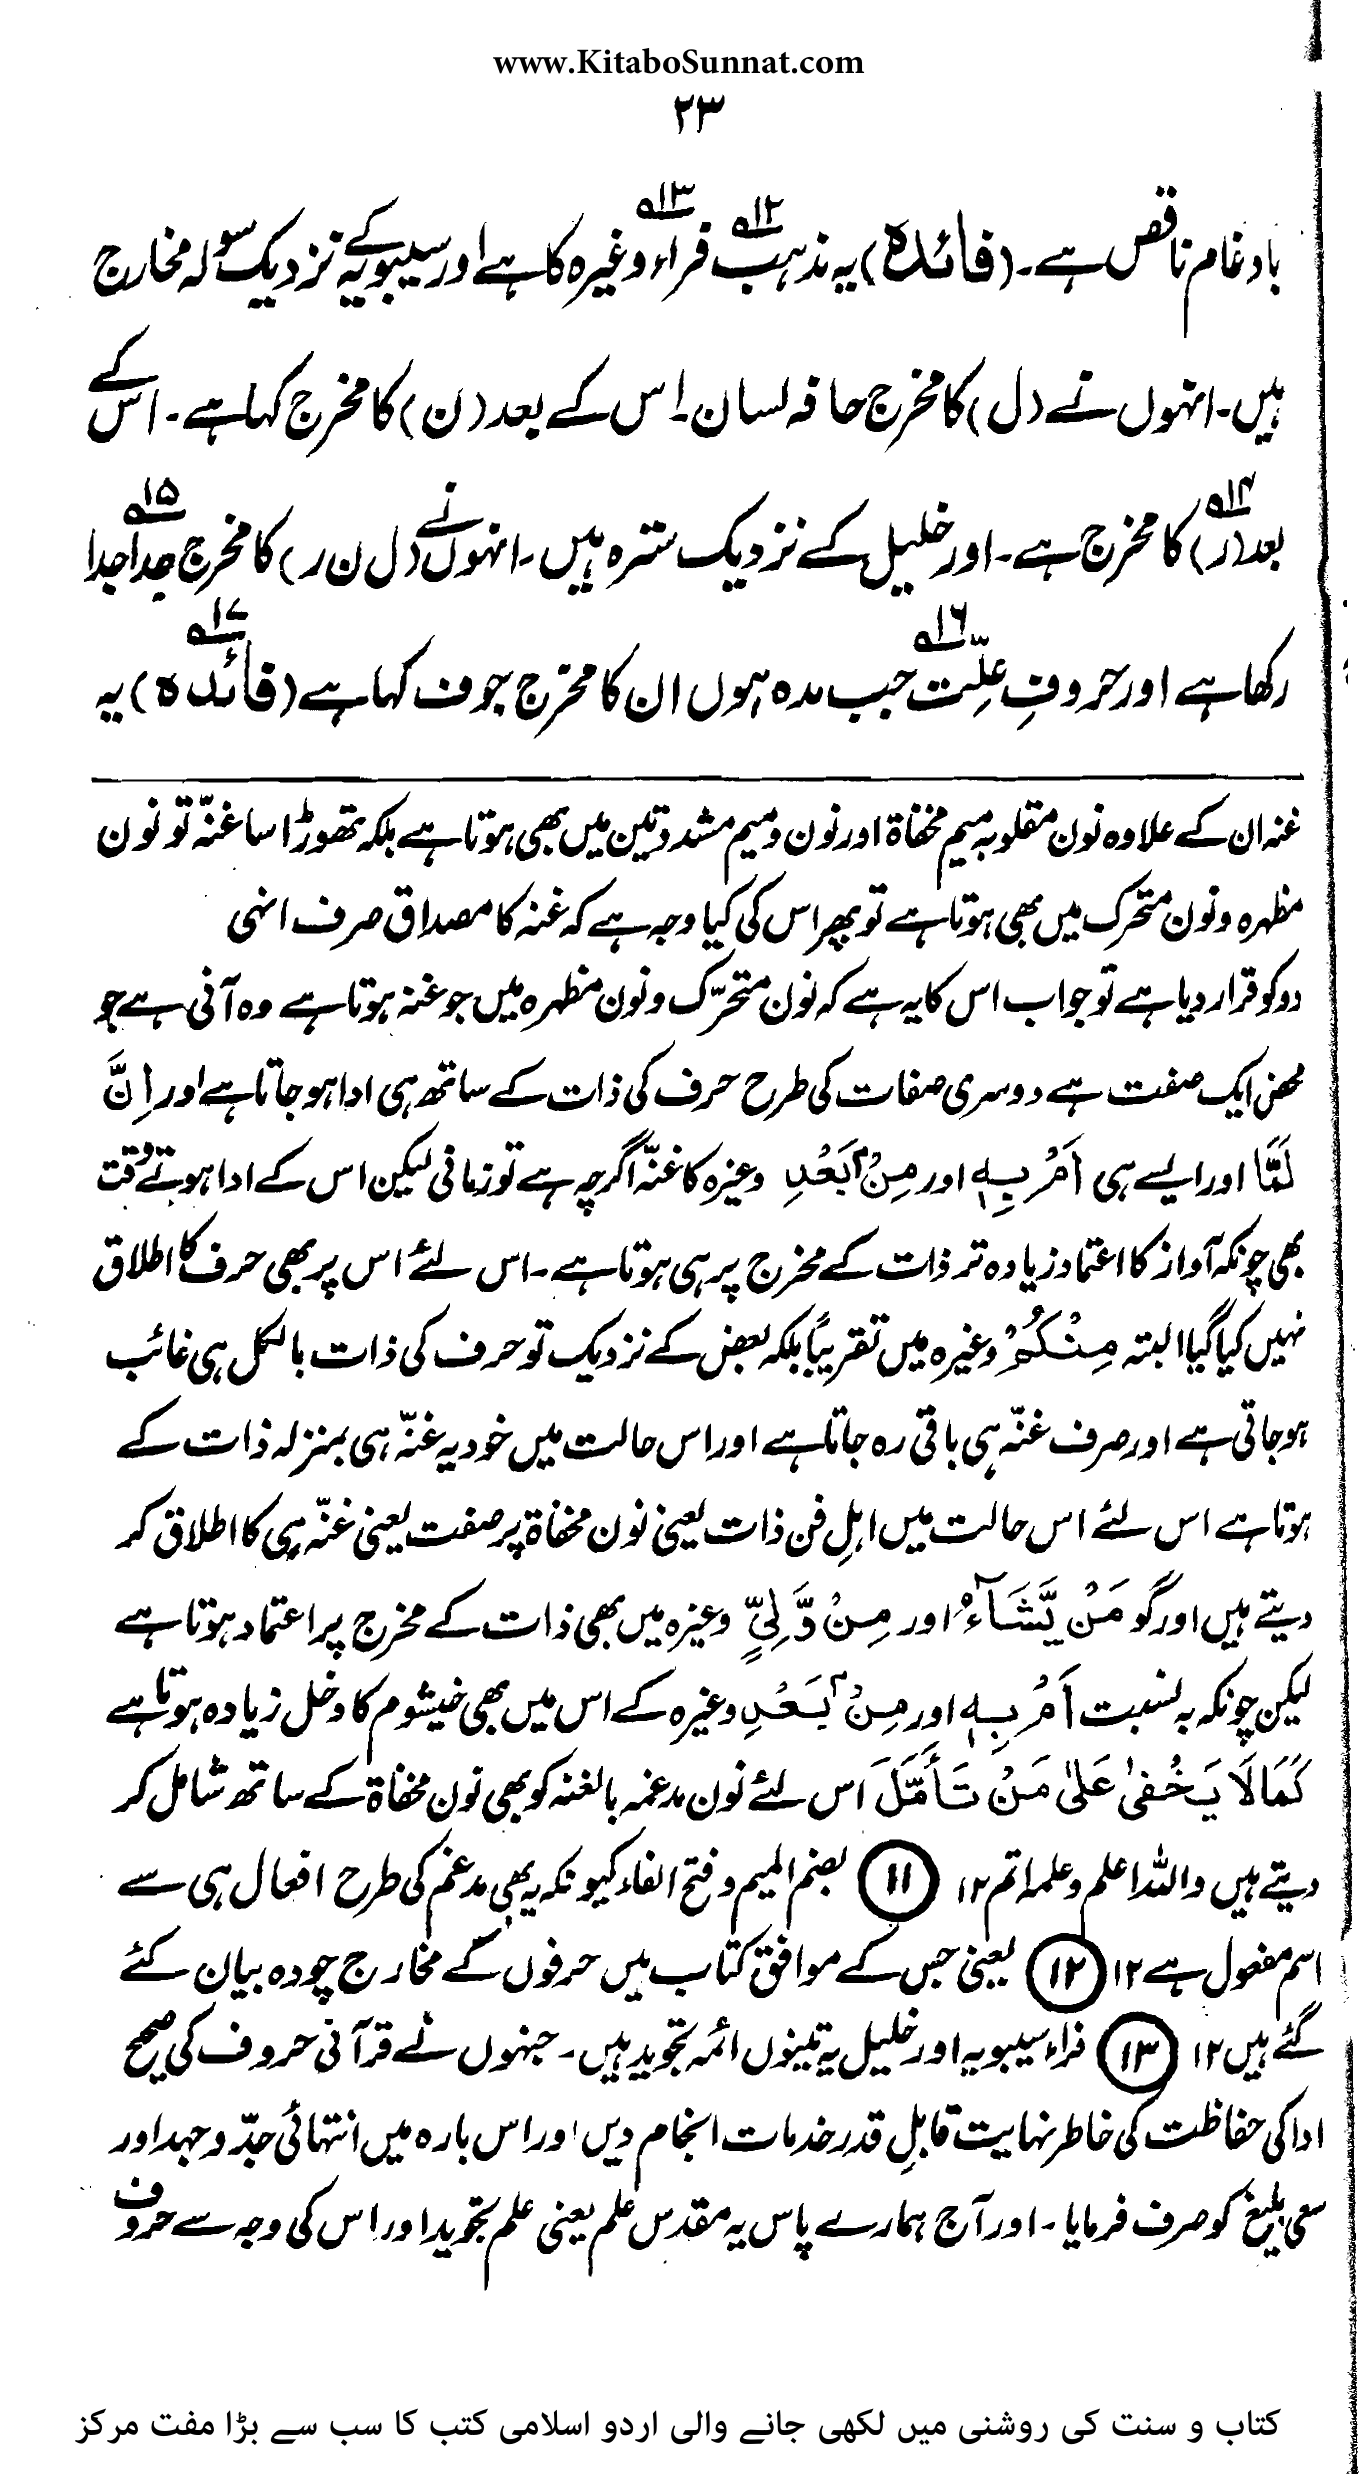 www.KitaboSunnat.com
۲۳
بادغام ناقص ہے۔ (فائدہ) یہ مذہب ۱۲؎ فراء ۱۳؎ وغیرہ کا ہے اور سیبویہ کے نزدیک سولہ مخارج
ہیں۔ انہوں نے (ل) کا مخرج حافہ لسان۔ اس کے بعد (ن) کا مخرج کہا ہے۔ اس کے
بعد (ر) ۱۴؎ کا مخرج ہے۔ اور خلیل کے نزدیک سترہ ہیں۔ انہوں نے (ل ن ر) کا مخرج جدا جدا ۱۵؎
رکھا ہے اور حروفِ علّت ۱۶؎ جب مدہ ہوں ان کا مخرج جوف کہا ہے (فائدہ) ۱۷؎ یہ
غنہ ان کے علاوہ نون مقلوبہ میم مخفاۃ اور نون و میم مشددتین میں بھی ہوتا ہے بلکہ تھوڑا سا غنّہ تو نون
مظہرہ و نون متحرک میں بھی ہوتا ہے تو پھر اس کی کیا وجہ ہے کہ غنہ کا مصداق صرف انہی
دو کو قرار دیا ہے تو جواب اس کا یہ ہے کہ نون متحرّک و نون مظہرہ میں جو غنہ ہوتا ہے وہ آنی ہے جو
محض ایک صفت ہے دوسری صفات کی طرح حرف کی ذات کے ساتھ ہی ادا ہو جاتا ہے اور اِنَّ
لَمَّا اور ایسے ہی اَمْ بِہٖ اور مِنْۢ بَعْدِ وغیرہ کا غنّہ اگرچہ ہے تو زمانی لیکن اس کے ادا ہوتے وقت
بھی چونکہ آواز کا اعتماد زیادہ تر ذات کے مخرج پر ہی ہوتا ہے۔ اس لئے اس پر بھی حرف کا اطلاق
نہیں کیا گیا البتہ مِنْکُمْ وغیرہ میں تقریباً بلکہ بعض کے نزدیک تو حرف کی ذات بالکل ہی غائب
ہو جاتی ہے اور صرف غنّہ ہی باقی رہ جاتا ہے اور اس حالت میں خود یہ غنّہ ہی بمنزلہ ذات کے
ہوتا ہے اس لئے اس حالت میں اہلِ فن ذات یعنی نون مخفاۃ پر صفت یعنی غنّہ ہی کا اطلاق کر
دیتے ہیں اور گو مَنْ یَّشَآءُ اور مِنْ وَّلِیٍّ وغیرہ میں بھی ذات کے مخرج پر اعتماد ہوتا ہے
لیکن چونکہ بہ نسبت اَمْ بِہٖ اور مِنْۢ بَعْدِ وغیرہ کے اس میں بھی خیشوم کا دخل زیادہ ہوتا ہے
کَمَا لَا یَخْفیٰ عَلیٰ مَنْ تَأَمَّلَ اس لئے نون مدغمہ بالغنہ کو بھی نون مخفاۃ کے ساتھ شامل کر
دیتے ہیں واللہ اعلم وعلمہ اتم ۱۲ (۱۱) بضم المیم و فتح الفاء کیونکہ یہ بھی مدغم کی طرح افعال ہی سے
اسم مفعول ہے ۱۲ (۱۲) یعنی جس کے موافق کتاب میں حرفوں کے مخارج چودہ بیان کئے
گئے ہیں ۱۲ (۱۳) فراء سیبویہ اور خلیل یہ تینوں ائمہ تجوید ہیں۔ جنہوں نے قرآنی حروف کی صحیح
ادا کی حفاظت کی خاطر نہایت قابلِ قدر خدمات انجام دیں اور اس بارہ میں انتہائی جدّ و جہد اور
سعی بلیغ کو صرف فرمایا۔ اور آج ہمارے پاس یہ مقدس علم یعنی علم تجوید اور اس کی وجہ سے حروف
کتاب و سنت کی روشنی میں لکھی جانے والی اردو اسلامی کتب کا سب سے بڑا مفت مرکز